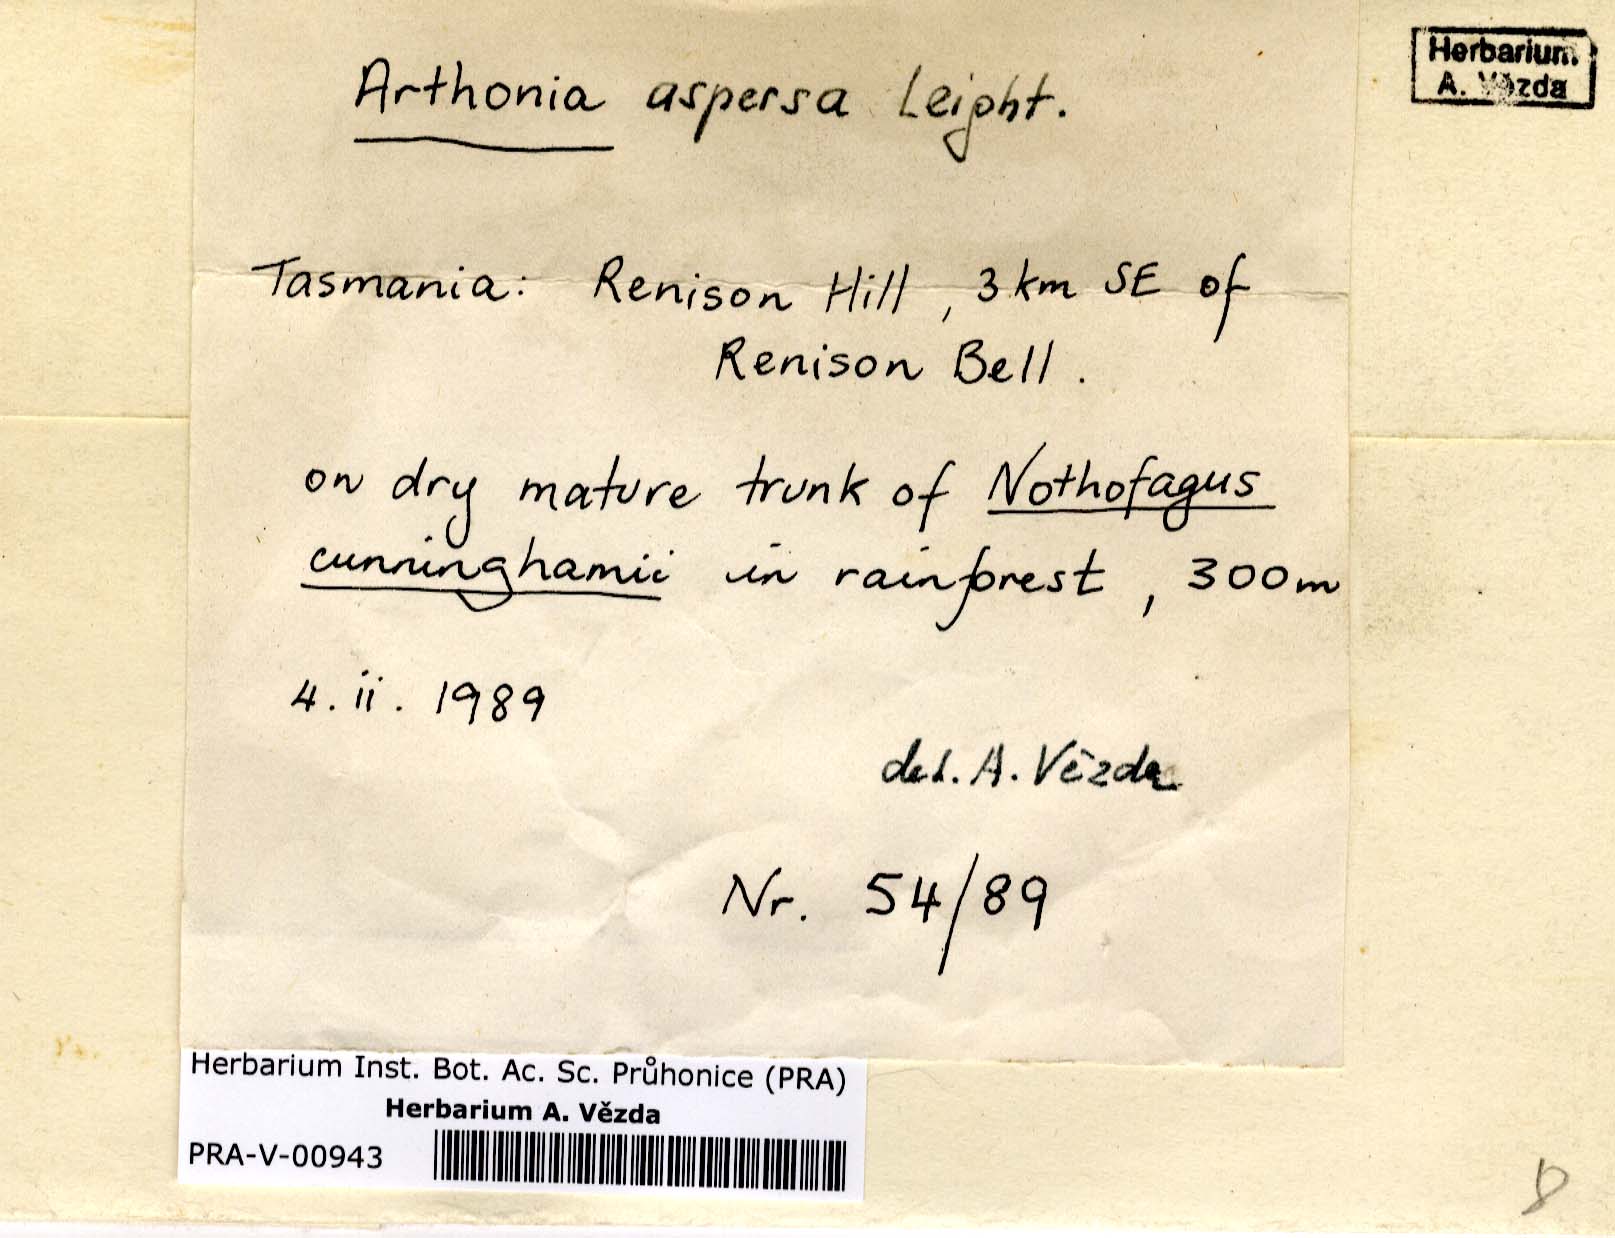 Herbarium
A. Vězda
Arthonia aspersa Leight.
Tasmania: Renison Hill, 3 km SE of
Renison Bell.
on dry mature trunk of Nothofagus
cunninghamii in rainforest, 300m
4. ii. 1989
det. A. Vězda
Nr. 54/89
Herbarium Inst. Bot. Ac. Sc. Průhonice (PRA)
Herbarium A. Vězda
PRA-V-00943